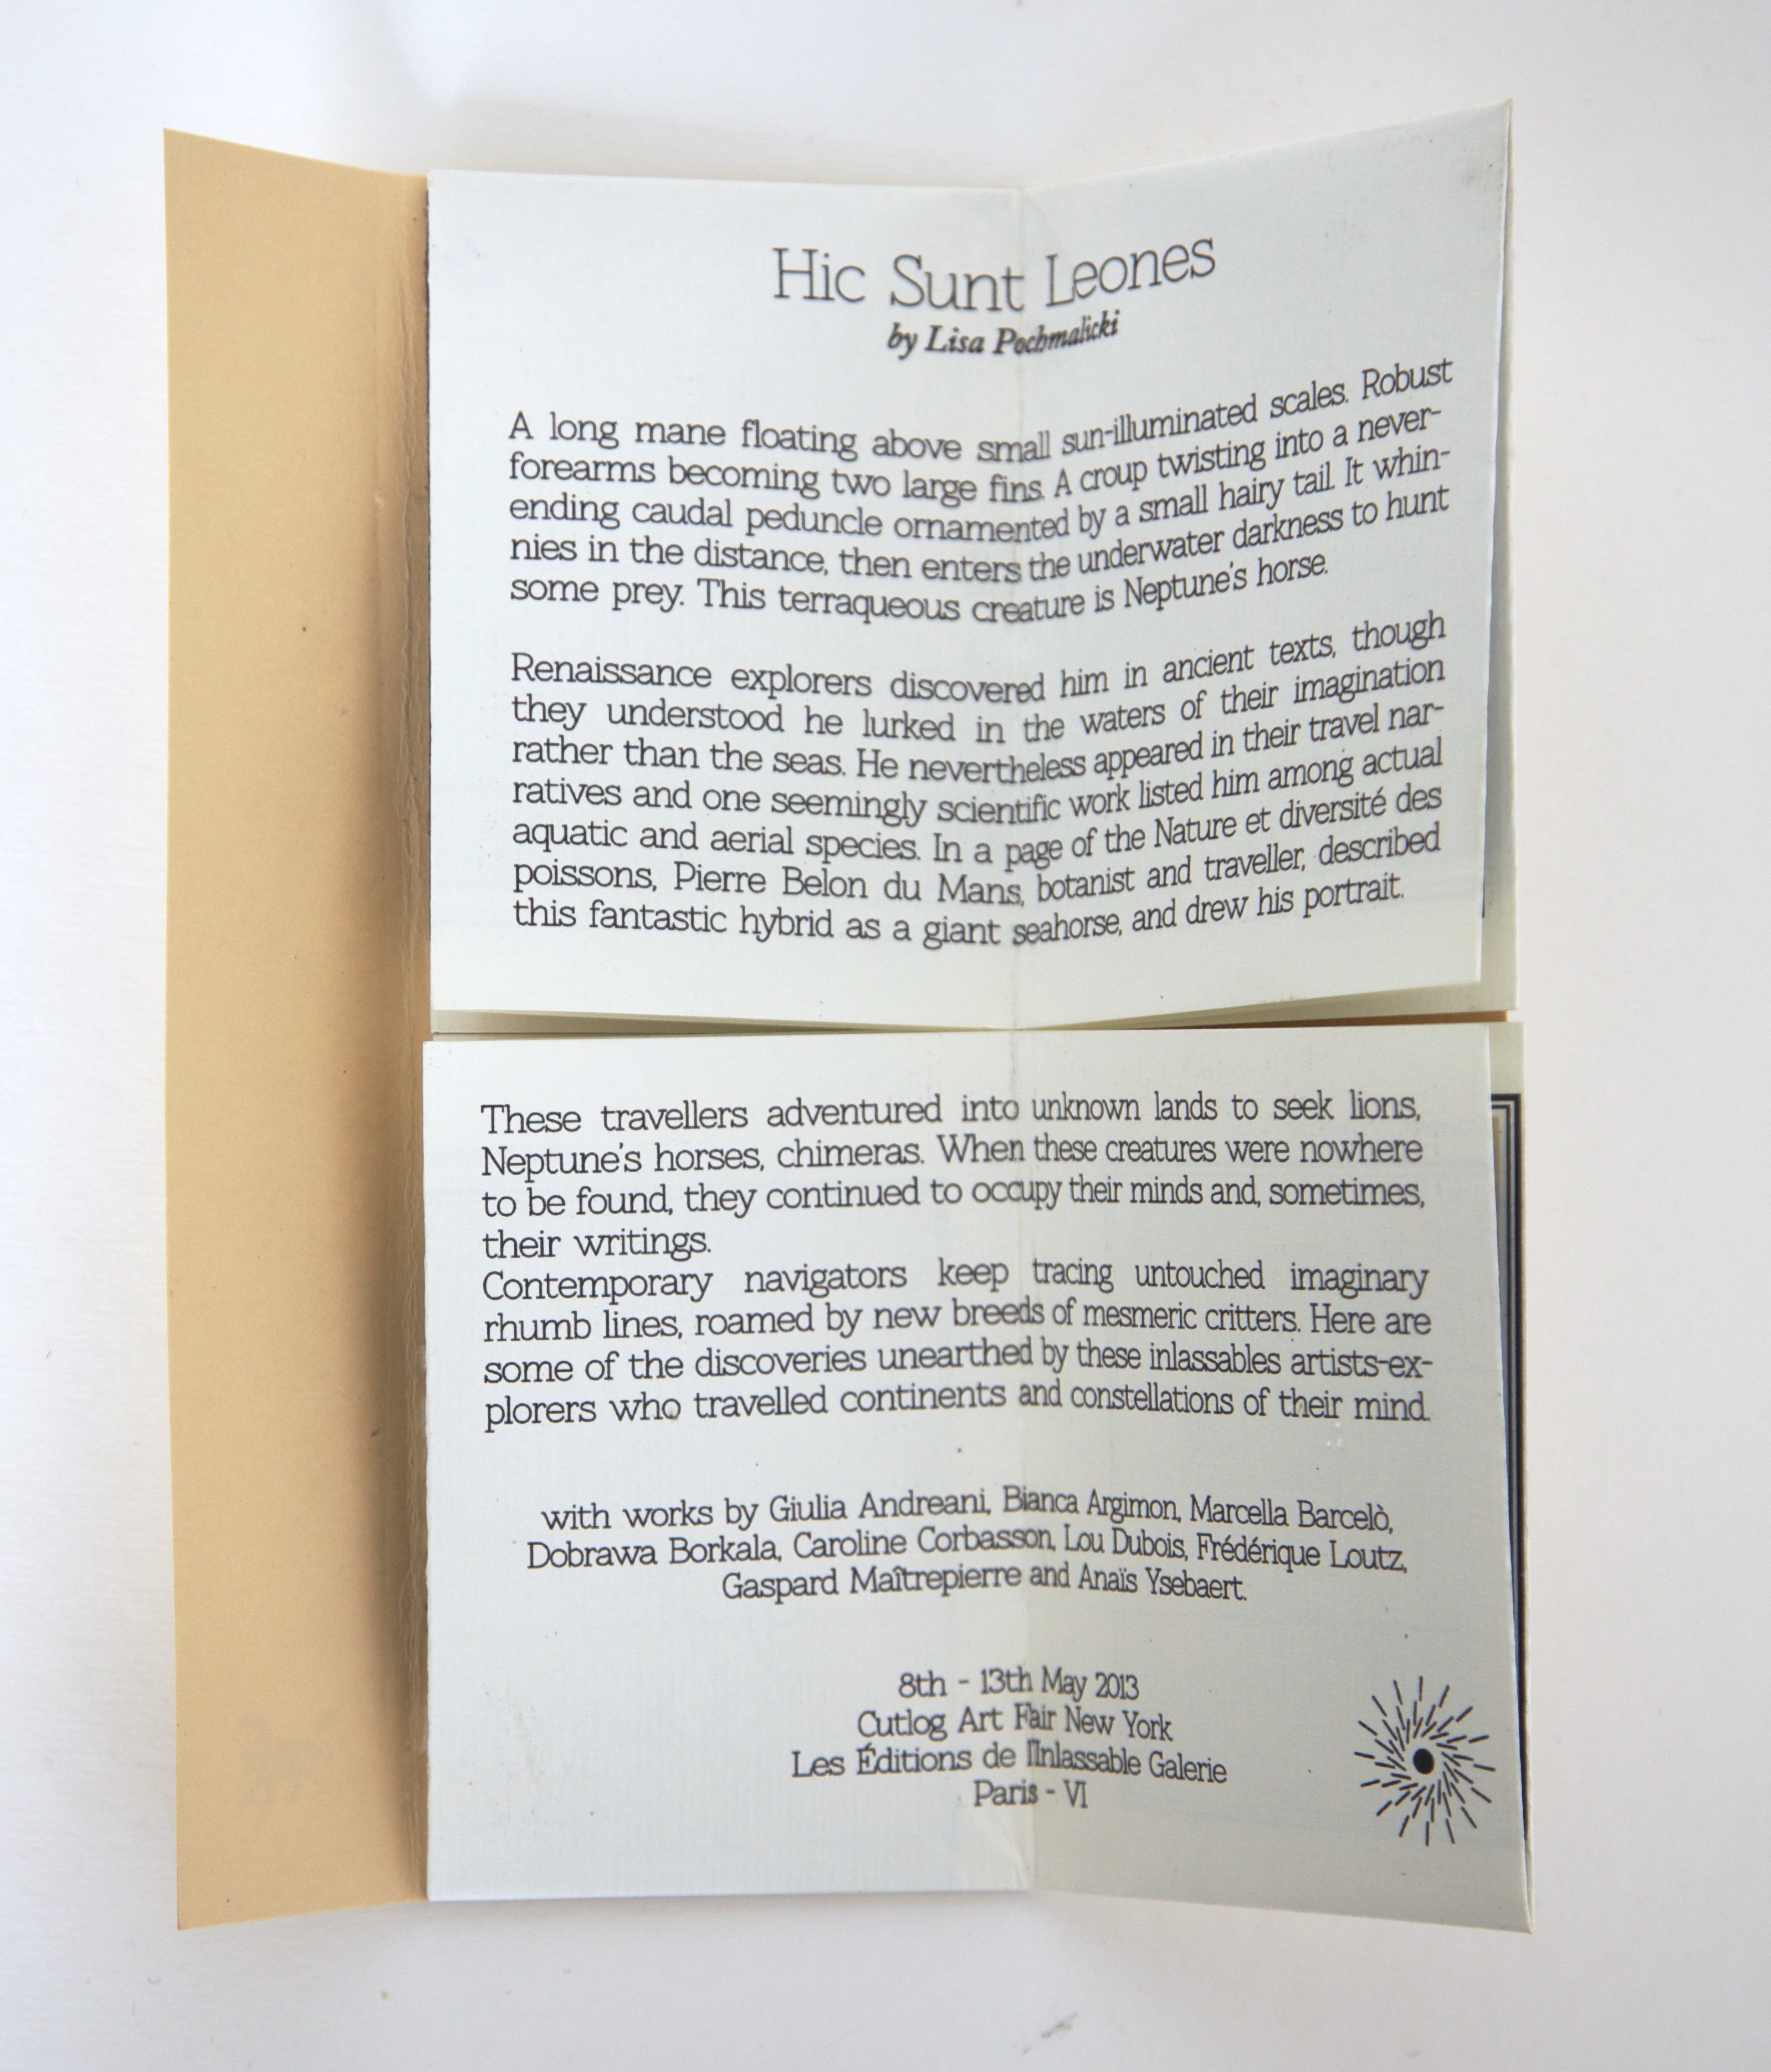 Hic Sunt Leones
by Lisa Pochmalicki
A long mane floating above small sun-illuminated scales. Robust
forearms becoming two large fins. A croup twisting into a never-
ending caudal peduncle ornamented by a small hairy tail. It whin-
nies in the distance, then enters the underwater darkness to hunt
some prey. This terraqueous creature is Neptune's horse.
Renaissance explorers discovered him in ancient texts, though
they understood he lurked in the waters of their imagination
rather than the seas. He nevertheless appeared in their travel nar-
ratives and one seemingly scientific work listed him among actual
aquatic and aerial species. In a page of the Nature et diversité des
poissons, Pierre Belon du Mans, botanist and traveller, described
this fantastic hybrid as a giant seahorse, and drew his portrait.
These travellers adventured into unknown lands to seek lions,
Neptune's horses, chimeras. When these creatures were nowhere
to be found, they continued to occupy their minds and, sometimes,
their writings.
Contemporary navigators keep tracing untouched imaginary
rhumb lines, roamed by new breeds of mesmeric critters. Here are
some of the discoveries unearthed by these inlassables artists-ex-
plorers who travelled continents and constellations of their mind.
with works by Giulia Andreani, Bianca Argimon, Marcella Barcelò,
Dobrawa Borkala, Caroline Corbasson, Lou Dubois, Frédérique Loutz,
Gaspard Maîtrepierre and Anaïs Ysebaert.
8th - 13th May 2013
Cutlog Art Fair New York
Les Éditions de l'Inlassable Galerie
Paris - VI